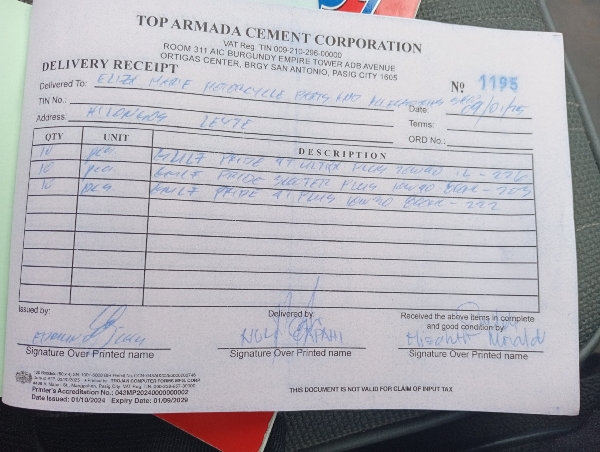 TOP ARMADA CEMENT CORPORATION
VAT Reg. TIN 009-210-296-00000
ROOM 311 AIC BURGUNDY EMPIRE TOWER ADB AVENUE
ORTIGAS CENTER, BRGY SAN ANTONIO, PASIG CITY 1605
DELIVERY RECEIPT
Nº 1195
Delivered To: ELIZA MARIE MOTORCYCLE PARTS AND
Date: 09/01/25
TIN No.:
Terms:
Address: HILONGOS LEYTE
ORD No.:
QTY UNIT DESCRIPTION
10 pcs GULF PRIDE 4T ULTRA PLUS 10W40 1L - 226
10 pcs GULF PRIDE SCOOTER PLUS 10W40
10 pcs GULF PRIDE 4T PLUS - 222
Issued by:
Delivered by:
Received the above items in complete
and good condition by
Signature Over Printed name
Signature Over Printed name
Signature Over Printed name
THIS DOCUMENT IS NOT VALID FOR CLAIM OF INPUT TAX
TROJAN COMPUTER FORMS MFG. CORP.
Printer's Accreditation No.: 043MP20240000000002
Date Issued: 01/10/2024 Expiry Date: 01/09/2029